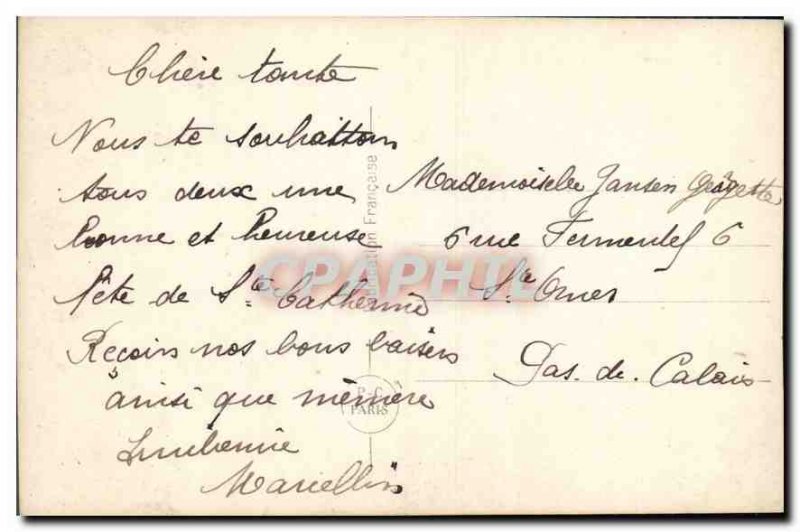 Chère tante
Nous te souhaittons
tous deux une
bonne et heureuse
fête de Ste Catherine
Recois nos bons baisers
ainsi que mémère
Marcellin
Mademoiselle Jansen Georgette
6 rue 6
St Omer
Pas. de. Calais
Fabrication Française
P-C
PARIS
CPAPHIL